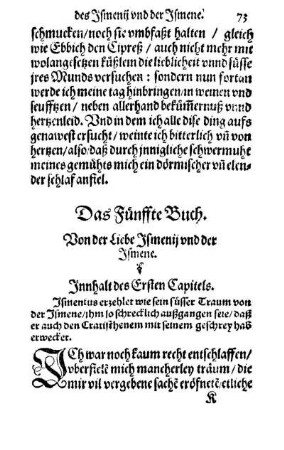 des Ismenij vnd der Ismene. 73
schmucken/noch sie vmbfaßt halten / gleich
wie Ebbich den Cipreß / auch nicht mehr mit
wolangesetzen küßlein die lieblicheit vnnd süsse
jres Munds versuchen : sondern nun fortan
werde ich meine tag hinbringen/in weinen vnd
seufftzen / neben allerhand bekümmernuß vnnd
hertzenleid. Vnd in dem ich alle dise ding auffs
genawest ersucht / weinte ich bitterlich vñ von
hertzen/also/daß durch jnnigliche schwermuht
meines gemühts mich ein dörmischer vñ elen-
der schlaf anfiel.
Das Fünffte Buch.
Von der Liebe Ismenij vnd der
Ismene.
Innhalt des Ersten Capitels.
Ismenius erzehlet wie sein süsser Traum von
der Ismene/ihm so schrecklich außgangen seie / daß
er auch den Cratisthenem mit seinem geschrey hab
erwecket.
ICh war noch kaum recht entschlaffen/
vberfielē mich mancherley träum / die
mir vil vergebene sachē eröfnetē:etliche
K